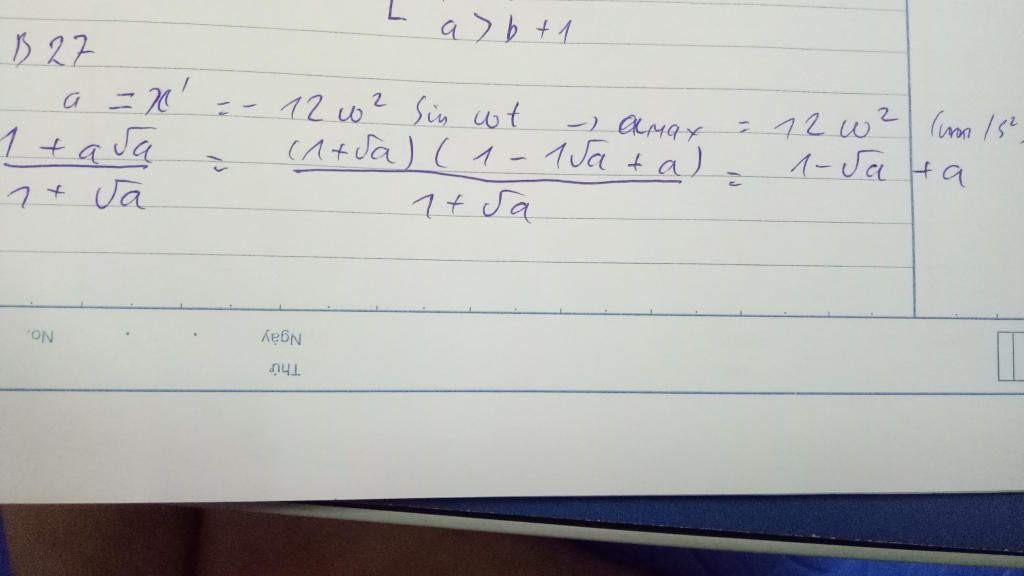 a > b + 1
B 27
a = x' = - 12 ω² Sin ωt → aMAX = 12 ω² (cm/s²)
1 + a√a / 1 + √a = (1+√a)(1 - 1√a + a) / 1 + √a = 1 - √a + a
No.
Ngày
Thứ